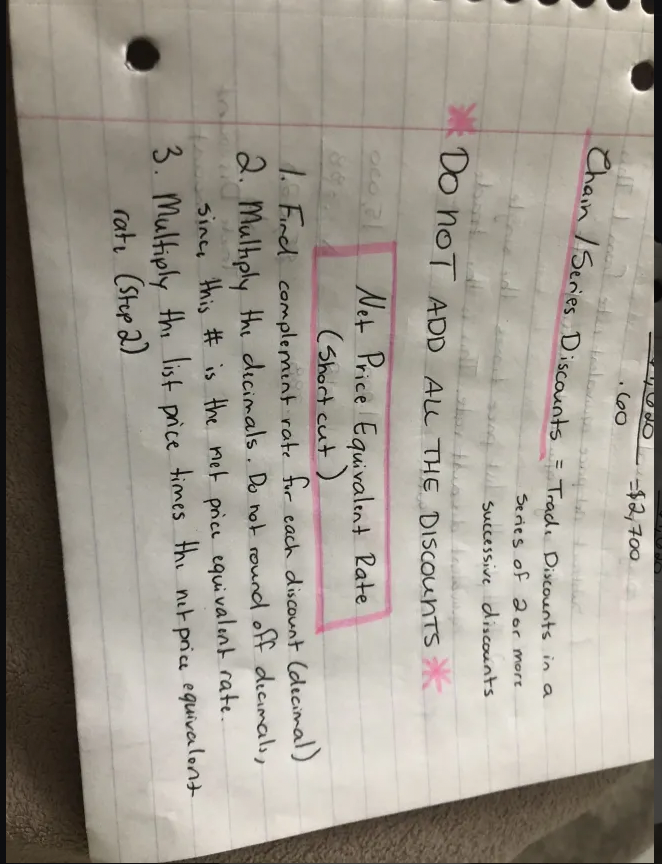 .60
= $2,700
Chain / Series Discounts = Trade Discounts in a
series of 2 or more
successive discounts
* DO NOT ADD ALL THE DISCOUNTS *
Net Price Equivalent Rate
(Shortcut)
1. Find complement rate for each discount (decimal)
2. Multiply the decimals. Do not round off decimals,
since this # is the net price equivalent rate.
3. Multiply the list price times the net price equivalent
rate (Step 2)